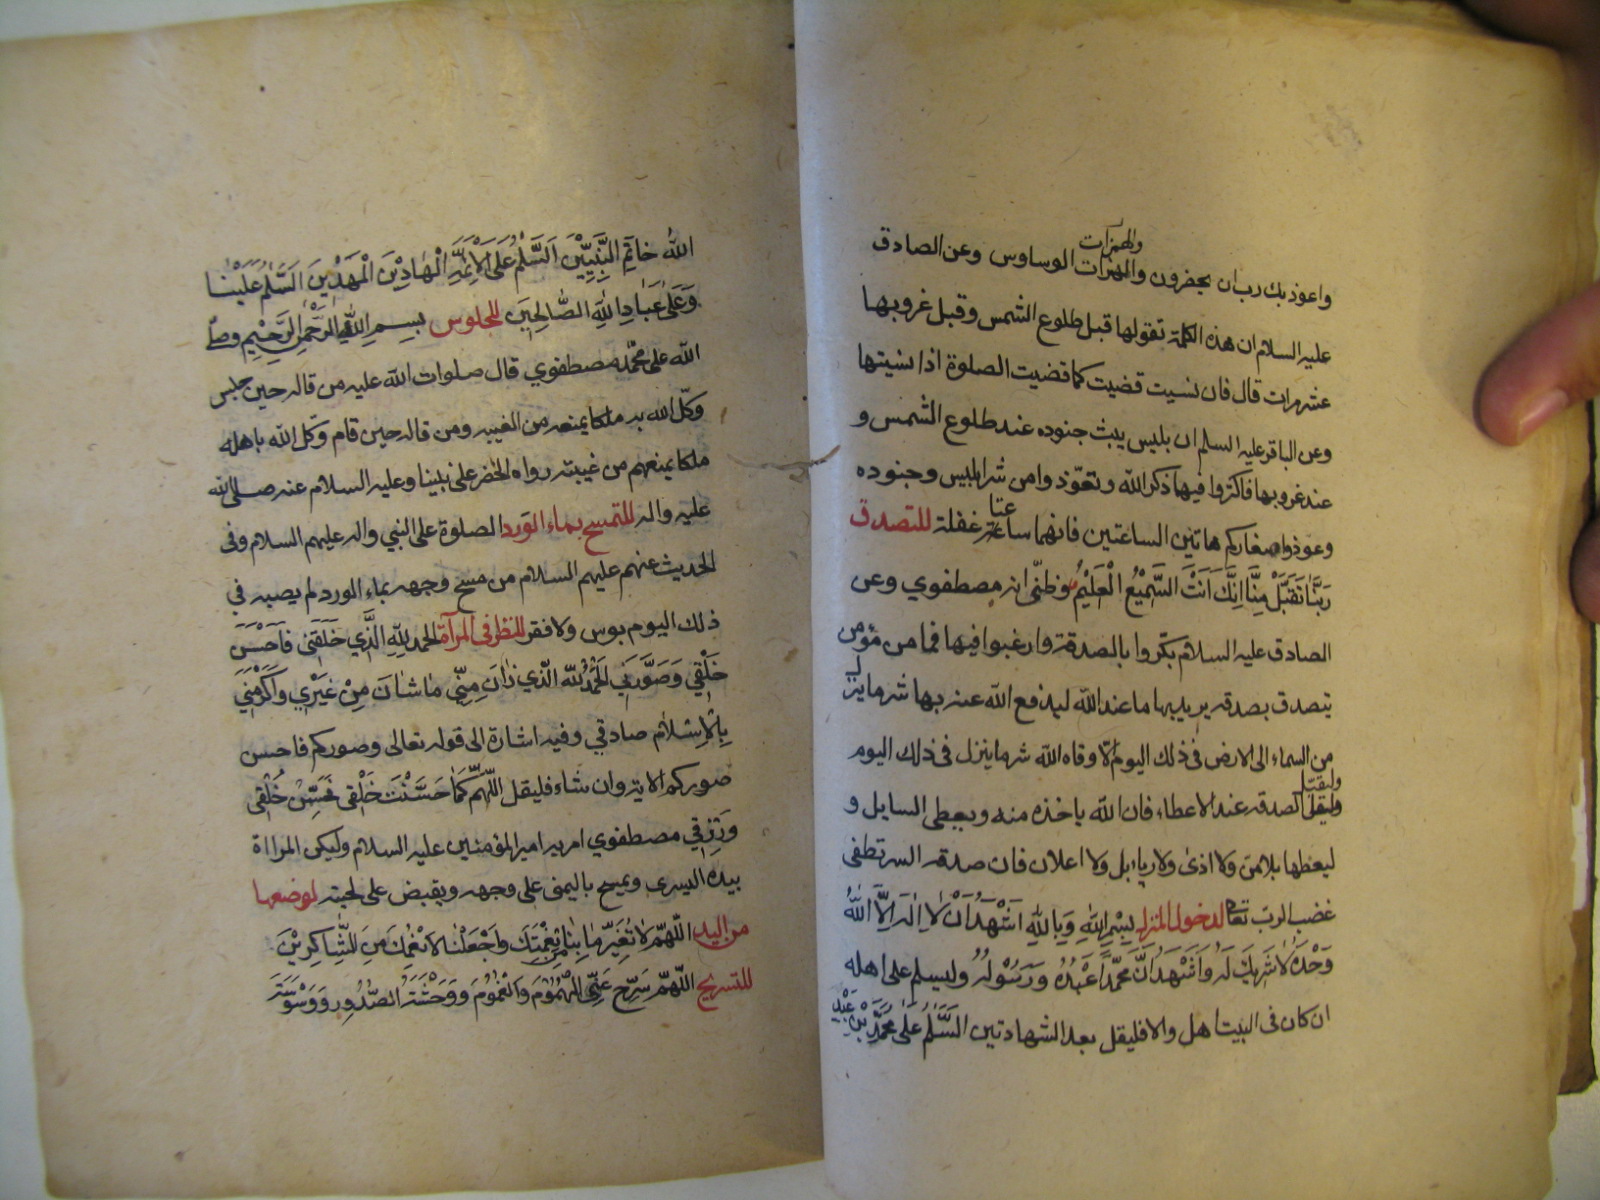 والهمزات
واعوذ بك رب ان يحضرون والهمزات الوساوس وعن الصادق
عليه السلام ان هذه الكلمة تقولها قبل طلوع الشمس وقبل غروبها
عشر مرات قال فان نسيت قضيت كما قضيت الصلوة اذا نسيتها
وعن الباقر عليه السلم ان بليس يبث جنوده عند طلوع الشمس و
عند غروبها فاكثروا فيها ذكر الله وتعوّذوا من شر ابليس وجنوده
وعوذوا صغاركم هاتين الساعتين فانهما ساعتا غفلة للتصدق
رَبَّنَا تَقَبَّلْ مِنَّا اِنَّكَ اَنْتَ السَّمِيْعُ الْعَلِيْمُ وظنّى انه مصطفوي وعن
الصادق عليه السلام بكروا بالصدقة وارغبوا فيها فما من مؤمن
يتصدق بصدقه يريد بها ما عند الله ليدفع الله عنه بها شر ما ينزل
من السماء الى الارض فى ذلك اليوم الّا وقاه الله شر ما ينزل فى ذلك اليوم
وليقبّل
الصدقه عند الاعطاء فان الله ياخذه منه ويعطى السايل و
ليعطها بلا من ولا اذى ولا رياء بل ولا اعلان فان صدقه السر تطفى
غضب الرب تعالى لدخول المنزل بِسْمِ اللهِ وَبِاللهِ اَشْهَدُ اَنْ لَا اِلٰهَ اِلَّا اللهُ
وَحْدَهُ لَا شَرِيْكَ لَهُ وَاَشْهَدُ اَنَّ مُحَمَّدًا عَبْدُهُ وَرَسُوْلُهُ وليسلم على اهله
ان كان فى البيت اهل والا فليقل بعد الشهادتين اَلسَّلٰمُ عَلٰى مُحَمَّدِ بْنِ عَبْدِ
اللهِ خَاتَمِ النَّبِيِّيْنَ اَلسَّلٰمُ عَلَى الْاَئِمَّةِ الْهَادِيْنَ الْمَهْدِيِّيْنَ اَلسَّلٰمُ عَلَيْنَا
وَعَلٰى عِبَادِ اللهِ الصَّالِحِيْنَ للجلوس بِسْمِ اللهِ الرَّحْمٰنِ الرَّحِيْمِ وصلّى
الله على محمّد مصطفوي قال صلوات الله عليه من قاله حين جلس
وكّل الله به ملكا يمنعه من الغيبه ومن قاله حين قام وكّل الله باهله
ملكا يمنعهم من غيبته رواه الخضر على نبينا وعليه السلام عنه صلى الله
عليه واله للتمسح بماء الورد الصلوة على النبي واله عليهم السلام وفى
الحديث عنهم عليهم السلام من مسح وجهه بماء الورد لم يصبه في
ذلك اليوم بوس ولا فقر للنظر فى المرآة الحمد لِلّٰهِ الَّذِي خَلَقَنِي فَاَحْسَنَ
خَلْقِي وَصَوَّرَنِي اَلْحَمْدُ لِلّٰهِ الَّذِي زَانَ مِنِّي مَا شَانَ مِنْ غَيْرِي وَاَكْرَمَنِي
بِالْاِسْلَامِ صادقي وفيه اشارة الى قوله تعالى وصوركم فاحسن
صوركم الايه وان شاء فليقل اَللّٰهُمَّ كَمَا حَسَّنْتَ خَلْقِي فَحَسِّنْ خُلْقِي
وَرِزْقِي مصطفوي امر به امير المؤمنين عليه السلام وليكن المرااة
بيده اليسرى ويمسح باليمنى على وجهه ويقبض على لحيته لوضعها
من اليد اَللّٰهُمَّ لَا تُغَيِّرْ مَا بِنَا مِنْ نِعْمَتِكَ وَاجْعَلْنَا لِاَنْعُمِكَ مِنَ الشَّاكِرِيْنَ
للتسريح اَللّٰهُمَّ سَرِّحْ عَنِّي الْهُمُوْمَ وَالْغُمُوْمَ وَوَحْشَةَ الصُّدُوْرِ وَوَسْوَسَةَ